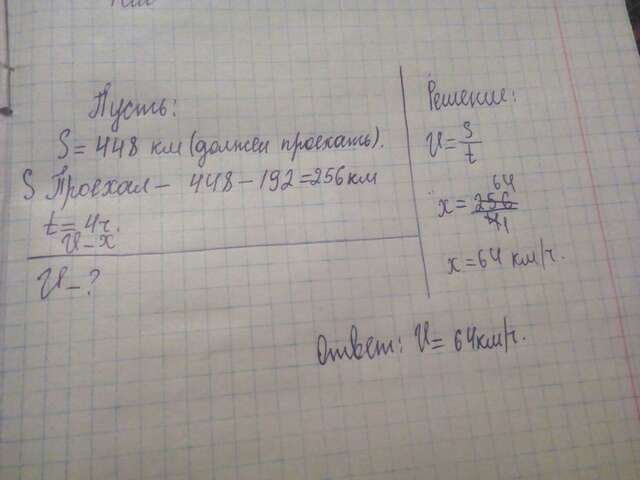 Пусть:
S = 448 км (должен проехать).
S Проехал – 448 – 192 = 256 км
t = 4ч.
V – x
V – ?
Решение:
V = S/t
64
x = 256/4 1
x = 64 км/ч.
Ответ: V = 64км/ч.